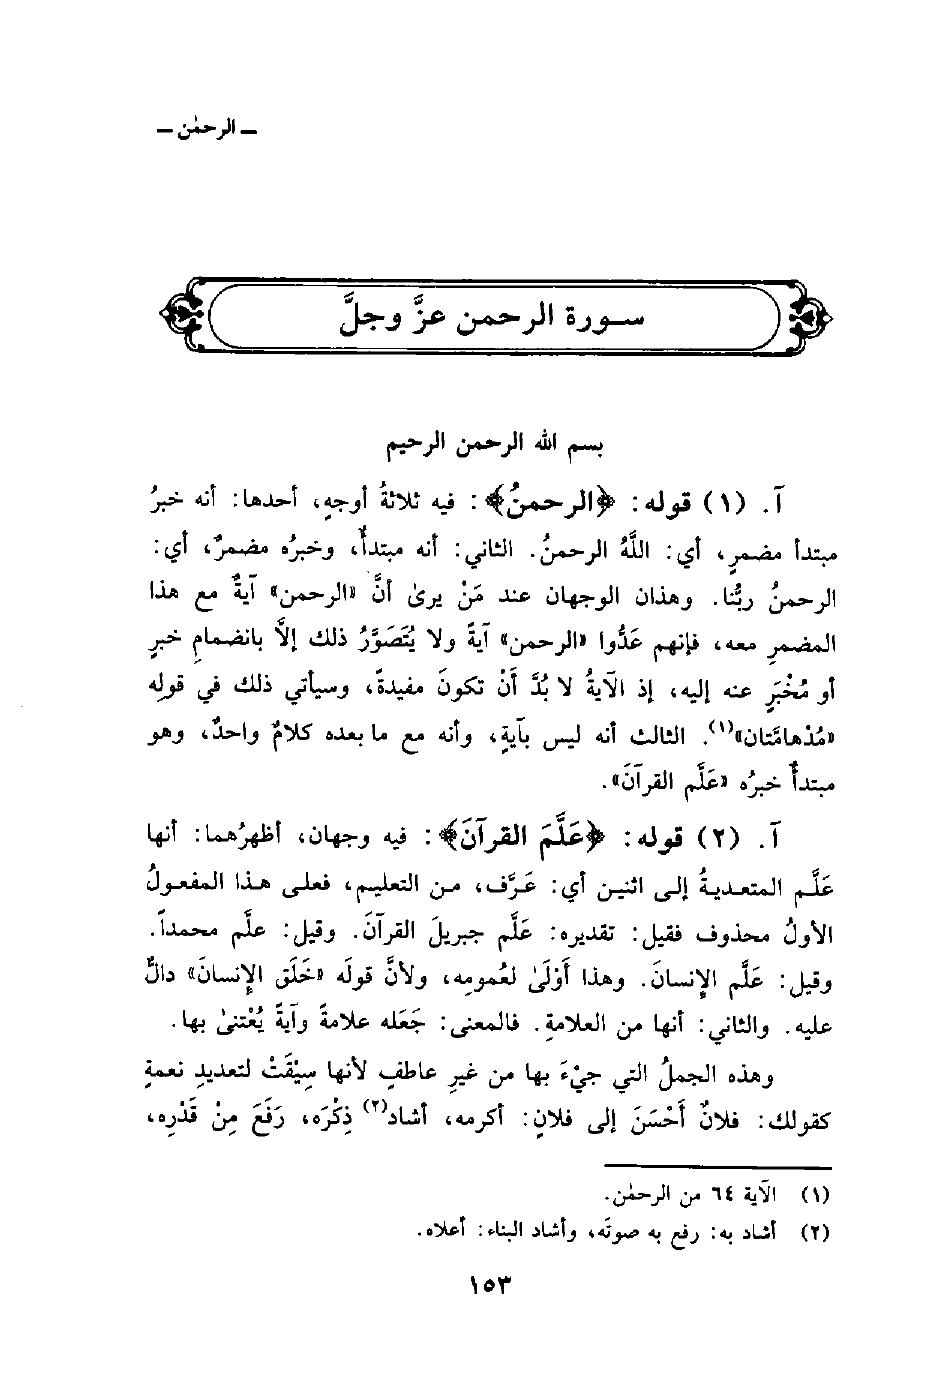 ـ الرحمٰن ـ
سورة الرحمن عزَّ وجلَّ
بسم الله الرحمن الرحيم
آ. (١) قوله: ﴿الرحمنُ﴾: فيه ثلاثةُ أوجهٍ، أحدها: أنه خبرُ
مبتدأ مضمرٍ، أي: اللَّهُ الرحمنُ. الثاني: أنه مبتدأٌ، وخبرُه مضمرٌ، أي:
الرحمنُ ربُّنا. وهذان الوجهان عند مَنْ يرىٰ أنَّ «الرحمن» آيةٌ مع هذا
المضمرِ معه، فإنهم عَدُّوا «الرحمن» آيةً ولا يُتَصَوَّرُ ذلك إلاَّ بانضمامِ خبرٍ
أو مُخْبَرٍ عنه إليه، إذ الآيةُ لا بُدَّ أَنْ تكونَ مفيدةً، وسيأتي ذلك في قولِه
«مُدْهامَّتان»(١). الثالث أنه ليس بآيةٍ، وأنه مع ما بعده كلامٌ واحدٌ، وهو
مبتدأٌ خبرُه «عَلَّم القرآنَ».
آ. (٢) قوله: ﴿عَلَّمَ القرآنَ﴾: فيه وجهان، أظهرُهما: أنها
عَلَّم المتعديةُ إلى اثنين أي: عَرَّف، من التعليم، فعلى هذا المفعولُ
الأولُ محذوف فقيل: تقديره: عَلَّم جبريلَ القرآنَ. وقيل: علَّم محمداً.
وقيل: عَلَّم الإِنسانَ. وهذا أَوْلَىٰ لعُمومِه، ولأنَّ قولَه «خَلَق الإِنسانَ» دالٌّ
عليه. والثاني: أنها من العلامةِ. فالمعنى: جَعَله علامةً وآيةً يُعْتنىٰ بها.
وهذه الجملُ التي جِيْءَ بها من غيرِ عاطفٍ لأنها سِيْقَتْ لتعديدِ نعمةٍ
كقولك: فلانٌ أَحْسَنَ إلى فلانٍ: أكرمه، أشاد(٢) ذِكْرَه، رَفَعَ مِنْ قَدْرِه،
(١) الآية ٦٤ من الرحمٰن.
(٢) أشاد به: رفع به صوتَه، وأشاد البناء: أعلاه.
١٥٣